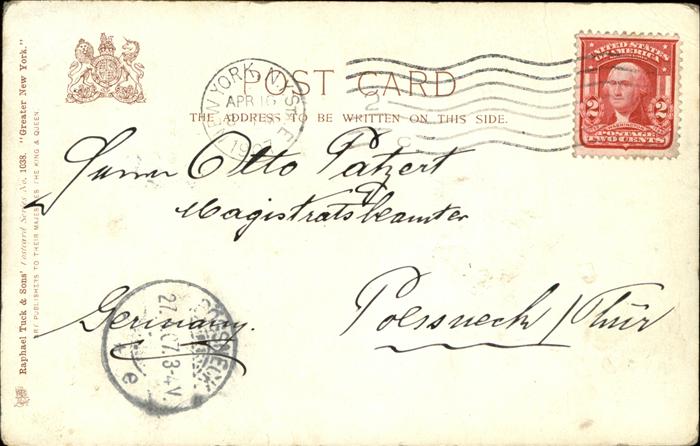 POST CARD
THE ADDRESS TO BE WRITTEN ON THIS SIDE.
NEW YORK, N.Y. STA. E
APR 16
UNITED STATES OF AMERICA
2 2
POSTAGE
TWO CENTS
Herrn Otto Patzert
Magistratsbeamter
Poessneck / Thür
Germany.
POESSNECK
27. 07. 3-4 V.
e
Raphael Tuck & Sons' Postcard Series No. 1038. "Greater New York."
ART PUBLISHERS TO THEIR MAJESTIES THE KING & QUEEN.